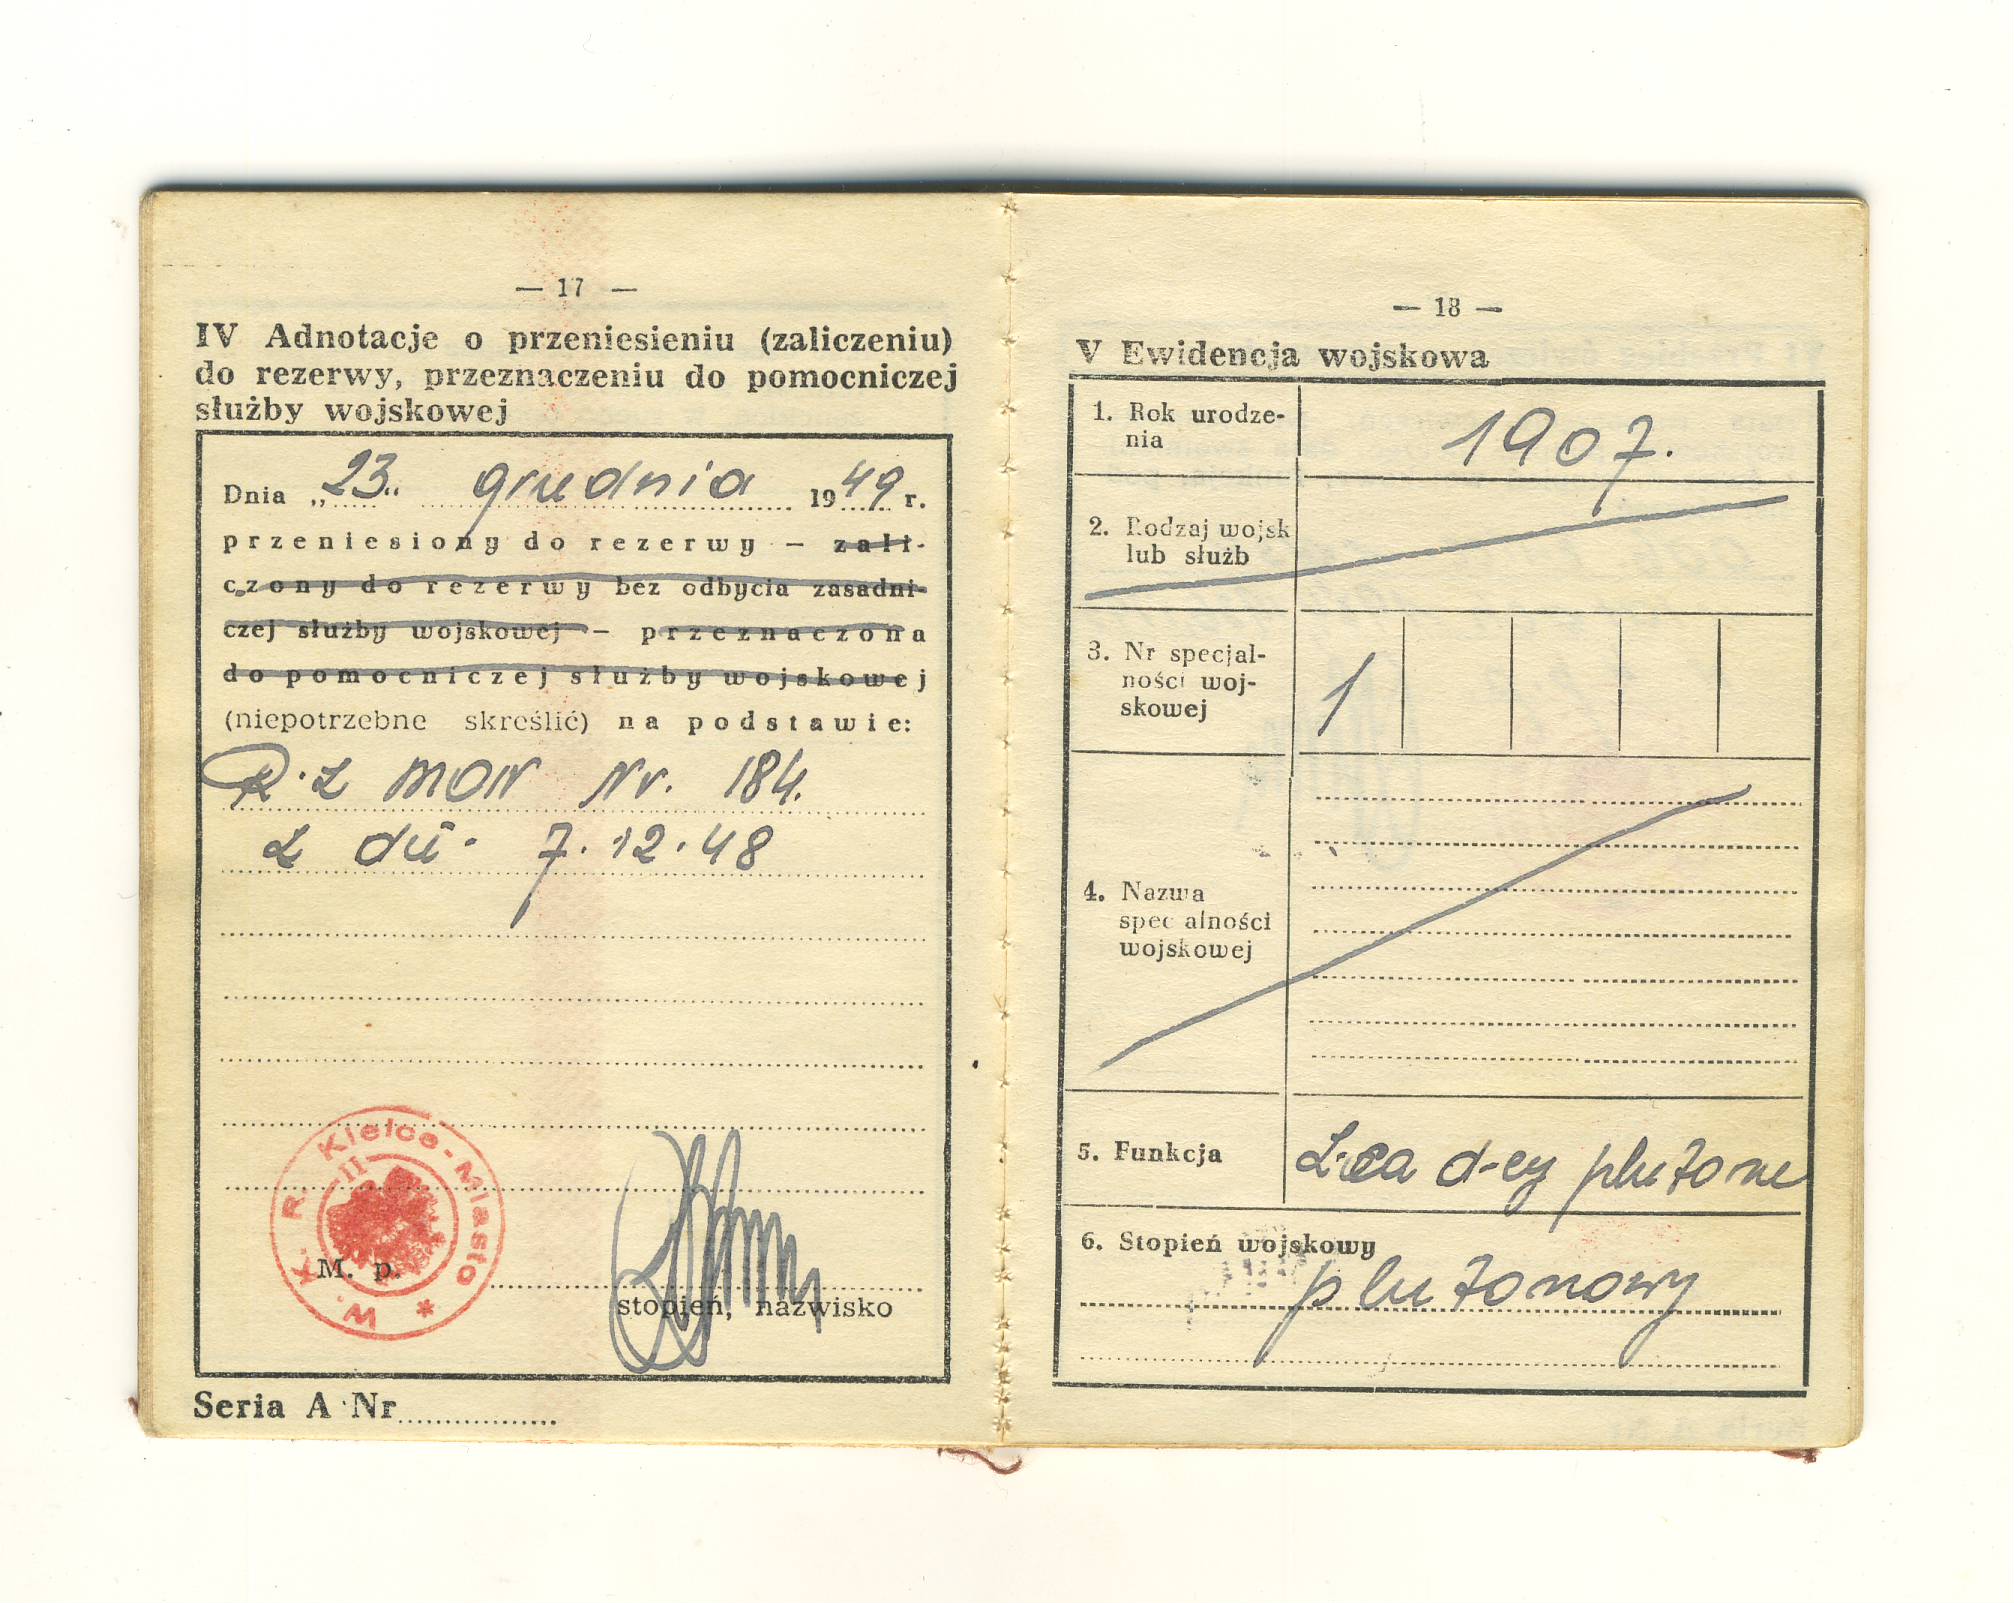 — 17 —
IV Adnotacje o przeniesieniu (zaliczeniu)
do rezerwy, przeznaczeniu do pomocniczej
służby wojskowej
Dnia „23“ grudnia 1949 r.
przeniesiony do rezerwy – zali-
czony do rezerwy bez odbycia zasadni-
czej służby wojskowej – przeznaczona
do pomocniczej służby wojskowej
(niepotrzebne skreślić) na podstawie:
R. Z MON Nr. 184.
Z dn. 7.12.48
W. K. R. Kielce-Miasto *
II
M. p.
stopień, nazwisko
Seria A Nr
— 18 —
V Ewidencja wojskowa
1. Rok urodze-
nia
1907.
2. Rodzaj wojsk
lub służb
3. Nr specjal-
ności woj-
skowej
1
4. Nazwa
spec alności
wojskowej
5. Funkcja
Z-ca d-cy plutonu
6. Stopień wojskowy
plutonowy